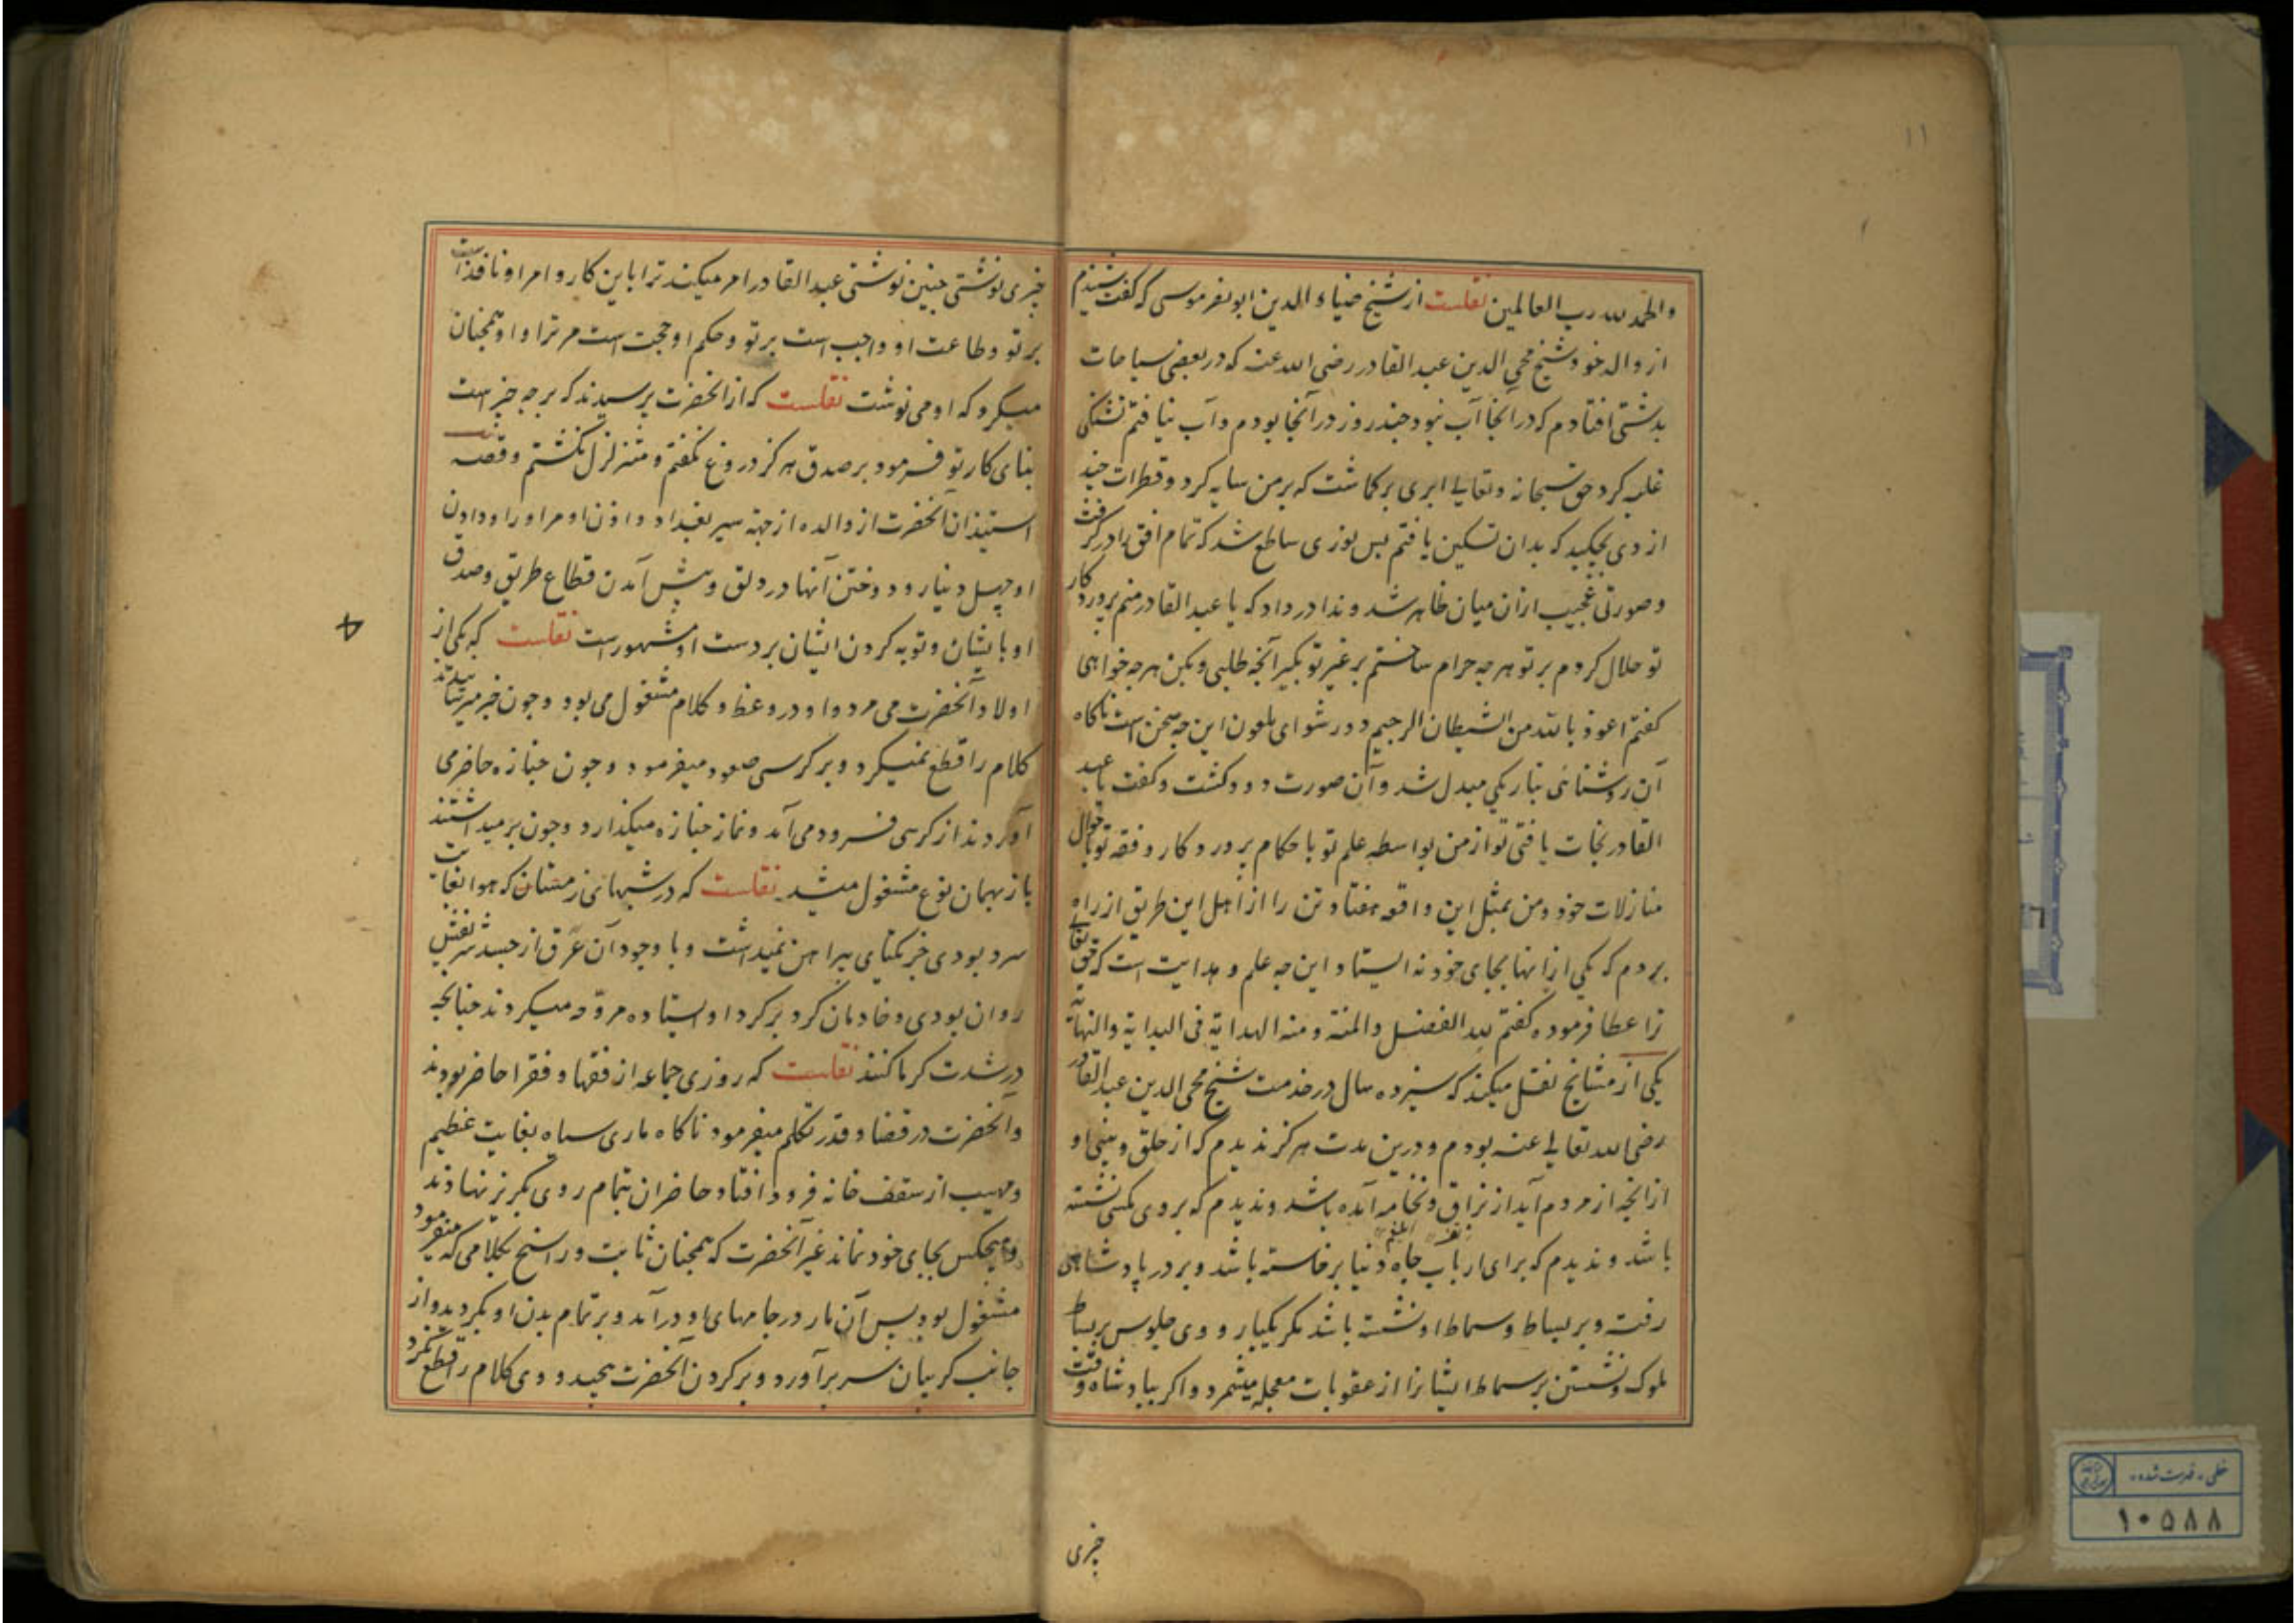 ۱۱
والحمد لله رب العالمین نقلست از شیخ ضیاء الدین ابو نصر موسی که گفت شنیدم
از والد خود شیخ محی الدین عبد القادر رضی الله عنه که در بعضی سیاحات
بدشتی افتادم که در آنجا آب نبود چند روز در آنجا بودم و آب نیافتم تشنکی
غلبه کرد حق سبحانه و تعالی ابری برکماشت که بر من سایه کرد و قطرات چند
از وی بچکید که بدان تسکین یافتم پس نوری ساطع شد که تمام افق را در گرفت
و صورتی عجیب از ان میان ظاهر شد و ندا در داد که یا عبد القادر منم پروردکار
تو حلال کردم بر تو هر چه حرام ساختم بر غیر تو بکیر آنچه طلبی و بکن هر چه خواهی
کفتم اعوذ بالله من الشیطان الرجیم دور شو ای ملعون این چه سخن است ناکاه
آن روشنائی بتاریکی مبدل شد و آن صورت دود کشت و کفت یا عبد
القادر نجات یافتی تو از من بواسطه علم تو باحکام پروردکار و فقه تو باحوال
منازلات خود و من بمثل این واقعه هفتاد تن را از اهل این طریق از راه
بردم که یکی از انها بجای خود نه ایستاد این چه علم و هدایت است که حق تعالی
ترا عطا فرموده کفتم لله الفضل والمنة و منه الهدایة فی البدایة والنهایة
یکی از مشایخ نقل میکند که سیزده سال در خدمت شیخ محی الدین عبد القادر
رضی الله تعالی عنه بودم و درین مدت هرکز ندیدم که از حلق و بینی او
از آنچه از مردم آید از بزاق و نخامه آمده باشد و ندیدم که بروی مکسی نشسته
باشد و ندیدم که برای ارباب جاه دنیا برخاسته باشد و بر در پادشاهی
رفته و بر بساط و سماط او نشسته باشد مکر یکبار و وی جلوس بر بساط
ملوک و نشستن بر سماط ایشانرا از عقوبات معجله میشمرد و اکر بپادشاه وقت
چیزی
چیزی نوشتی چنین نوشتی عبد القادر امر میکند ترا باین کار و امر او نافذ است
بر تو و طاعت او واجب است بر تو و حکم او حجت است مر ترا و او همچنان
میکرد که او می نوشت نقلست که از آنحضرت پرسیدند که بر چه چیز است
بنای کار تو فرمود بر صدق هرکز دروغ نکفتم و متزلزل نکشتم و قصه
استیذان آنحضرت از والده از جهة سیر بغداد و اذن او مر او را و دادن
او چهل دینار و دوختن آنها در دلق و پیش آمدن قطاع طریق و صدق
او با یشان و توبه کردن ایشان بر دست او مشهور است نقلست که یکی از
اولاد آنحضرت می مرد و او در وعظ و کلام مشغول می بود و چون خبر میرسانیدند
کلام را قطع نمیکرد و بر کرسی صعود میفرمود و چون جنازه حاضر می
آوردند از کرسی فرود می آمد و نماز جنازه میکذارد و چون برمیداشتند
باز بهمان نوع مشغول میشد نقلست که در شبهائی زمستان که هوا بغایت
سرد بودی جز یکتای پیراهن نمیداشت و با وجود آن عرق از جسد شریفش
روان بودی و خادمان کرد بر کرد او ایستاده مروحه میکردند چنانچه
در شدت کرما کنند نقلست که روزی جماعه از فقها و فقرا حاضر بودند
و آنحضرت در قضا و قدر تکلم میفرمود ناکاه ماری سیاه بغایت عظیم
و مهیب از سقف خانه فرود افتاد حاضران بتمام روی بکریز نهادند
و هیچکس بجای خود نماند غیر آنحضرت که همچنان ثابت و راسخ بکلامی که میفرمود
مشغول بود پس آن مار در جامهای او در آمد و بر تمام بدن او بکردید و از
جانب کریبان سر بر آورد و بر کردن آنحضرت پیچید و وی کلام را قطع نکرد
خطی - فهرست شده
۱۰۵۸۸